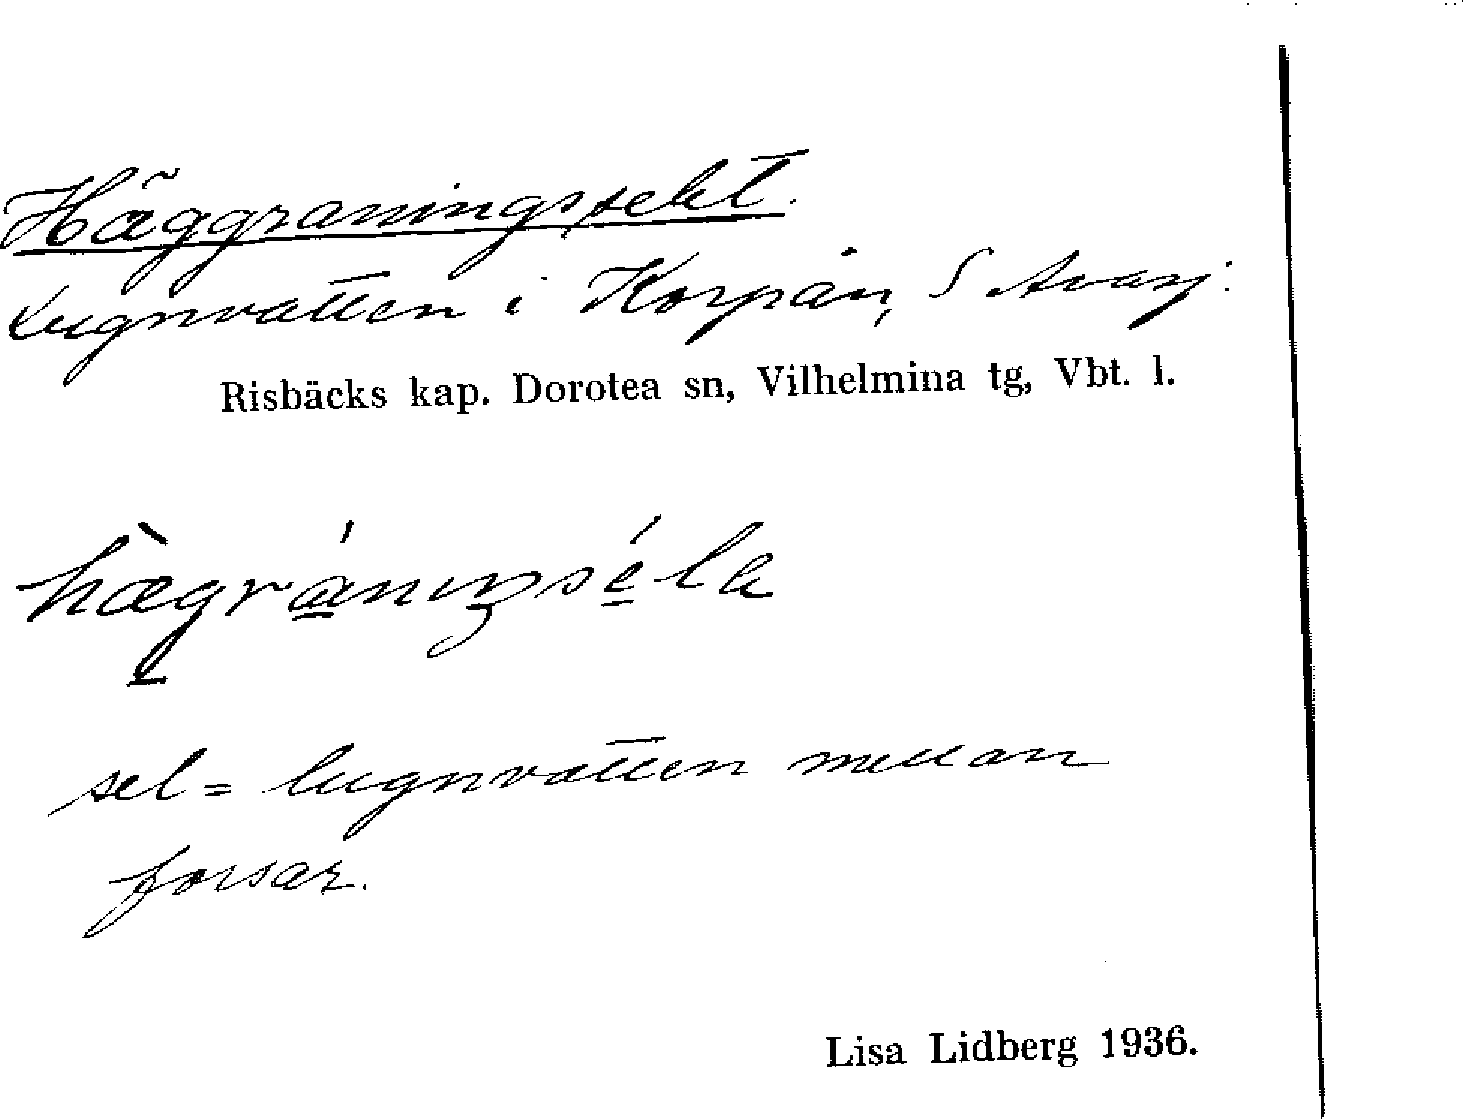 Häggraningsselet.
Lugnvatten i Korpån, S Avasj:
Risbäcks kap. Dorotea sn, Vilhelmina tg, Vbt. l.
sel = lugnvatten mellan
forsar.
Lisa Lidberg 1936.